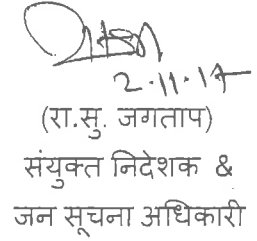 2.11.17
(रा.सु. जगताप)
संयुक्त निदेशक &
जन सूचना अधिकारी